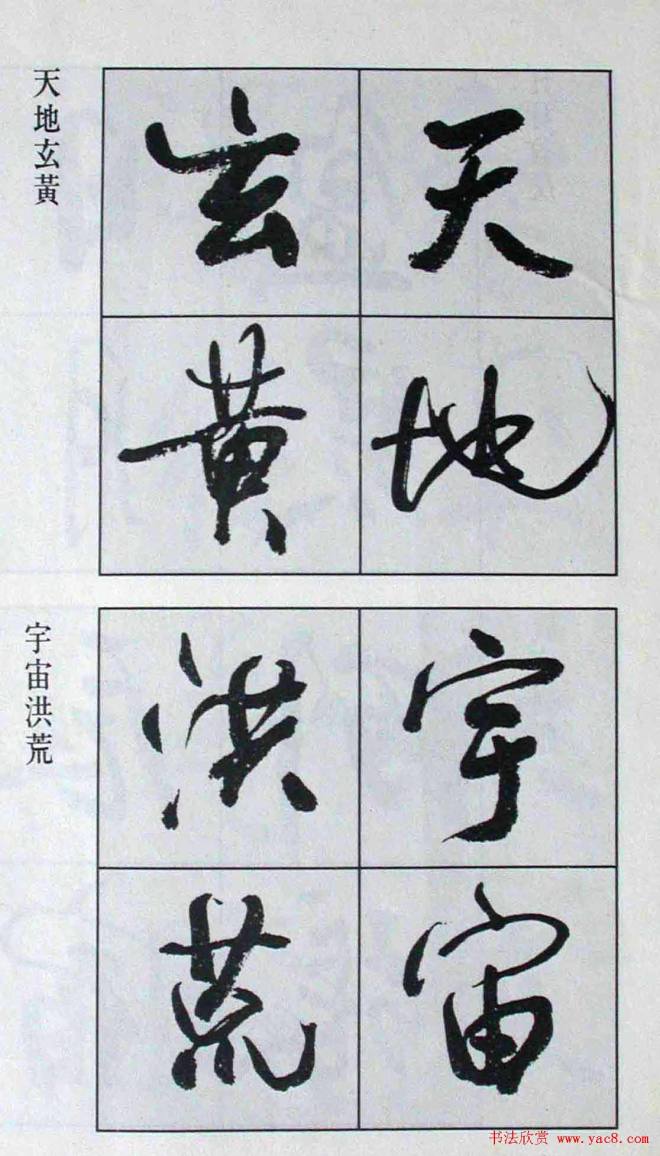 天地玄黃
天地
玄黃
宇宙洪荒
宇宙
洪荒
书法欣赏 www.yac8.com